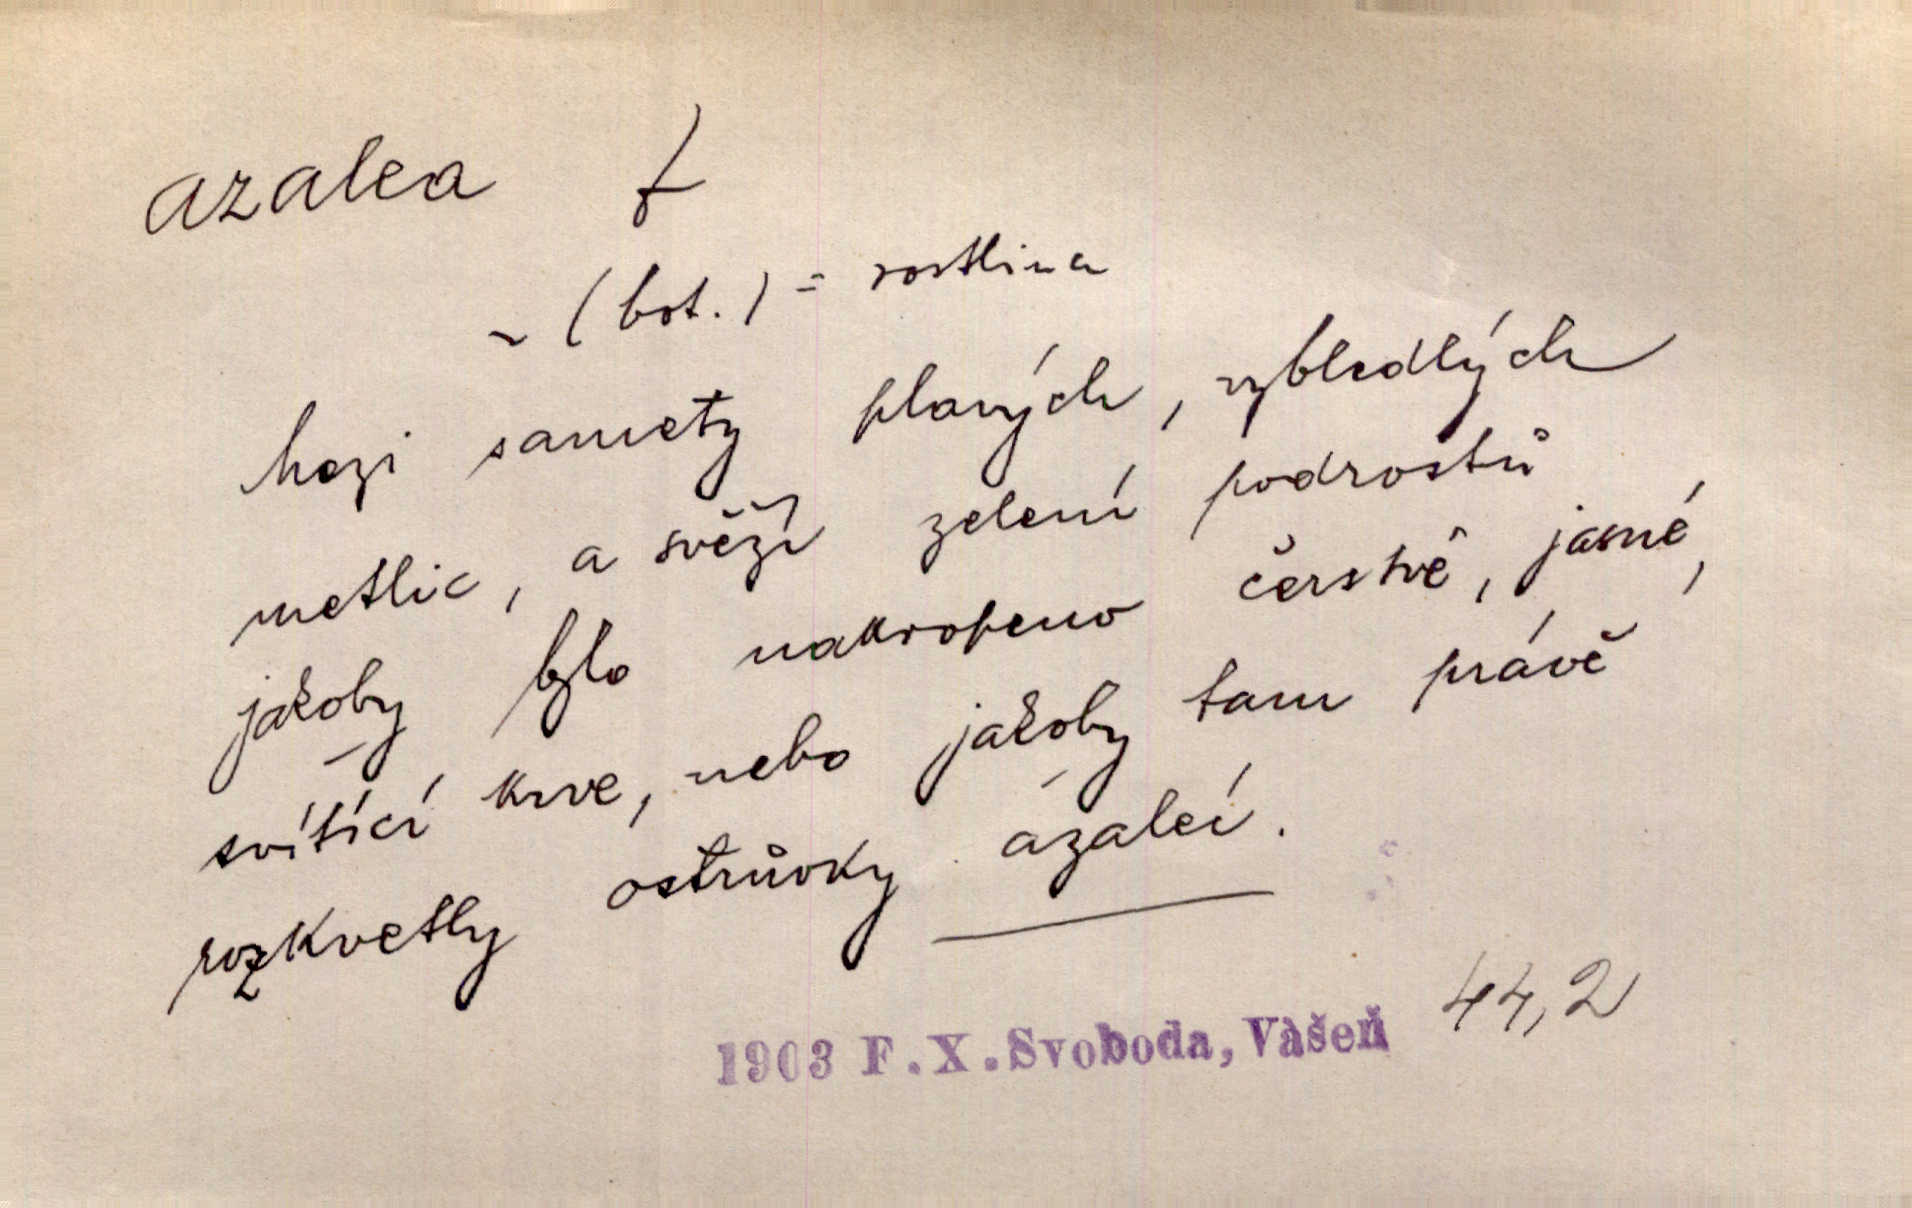 azalea f
~ (bot.) = rostlina
Mezi samety plavých, vybledlých
metlic, a svěží zelení podrostů
jakoby bylo nakropeno čerstvé, jasné,
svítící krve, nebo jakoby tam právě
rozkvetly ostrůvky ázaleí.
1903 F.X.Svoboda, Vášeň 44,2